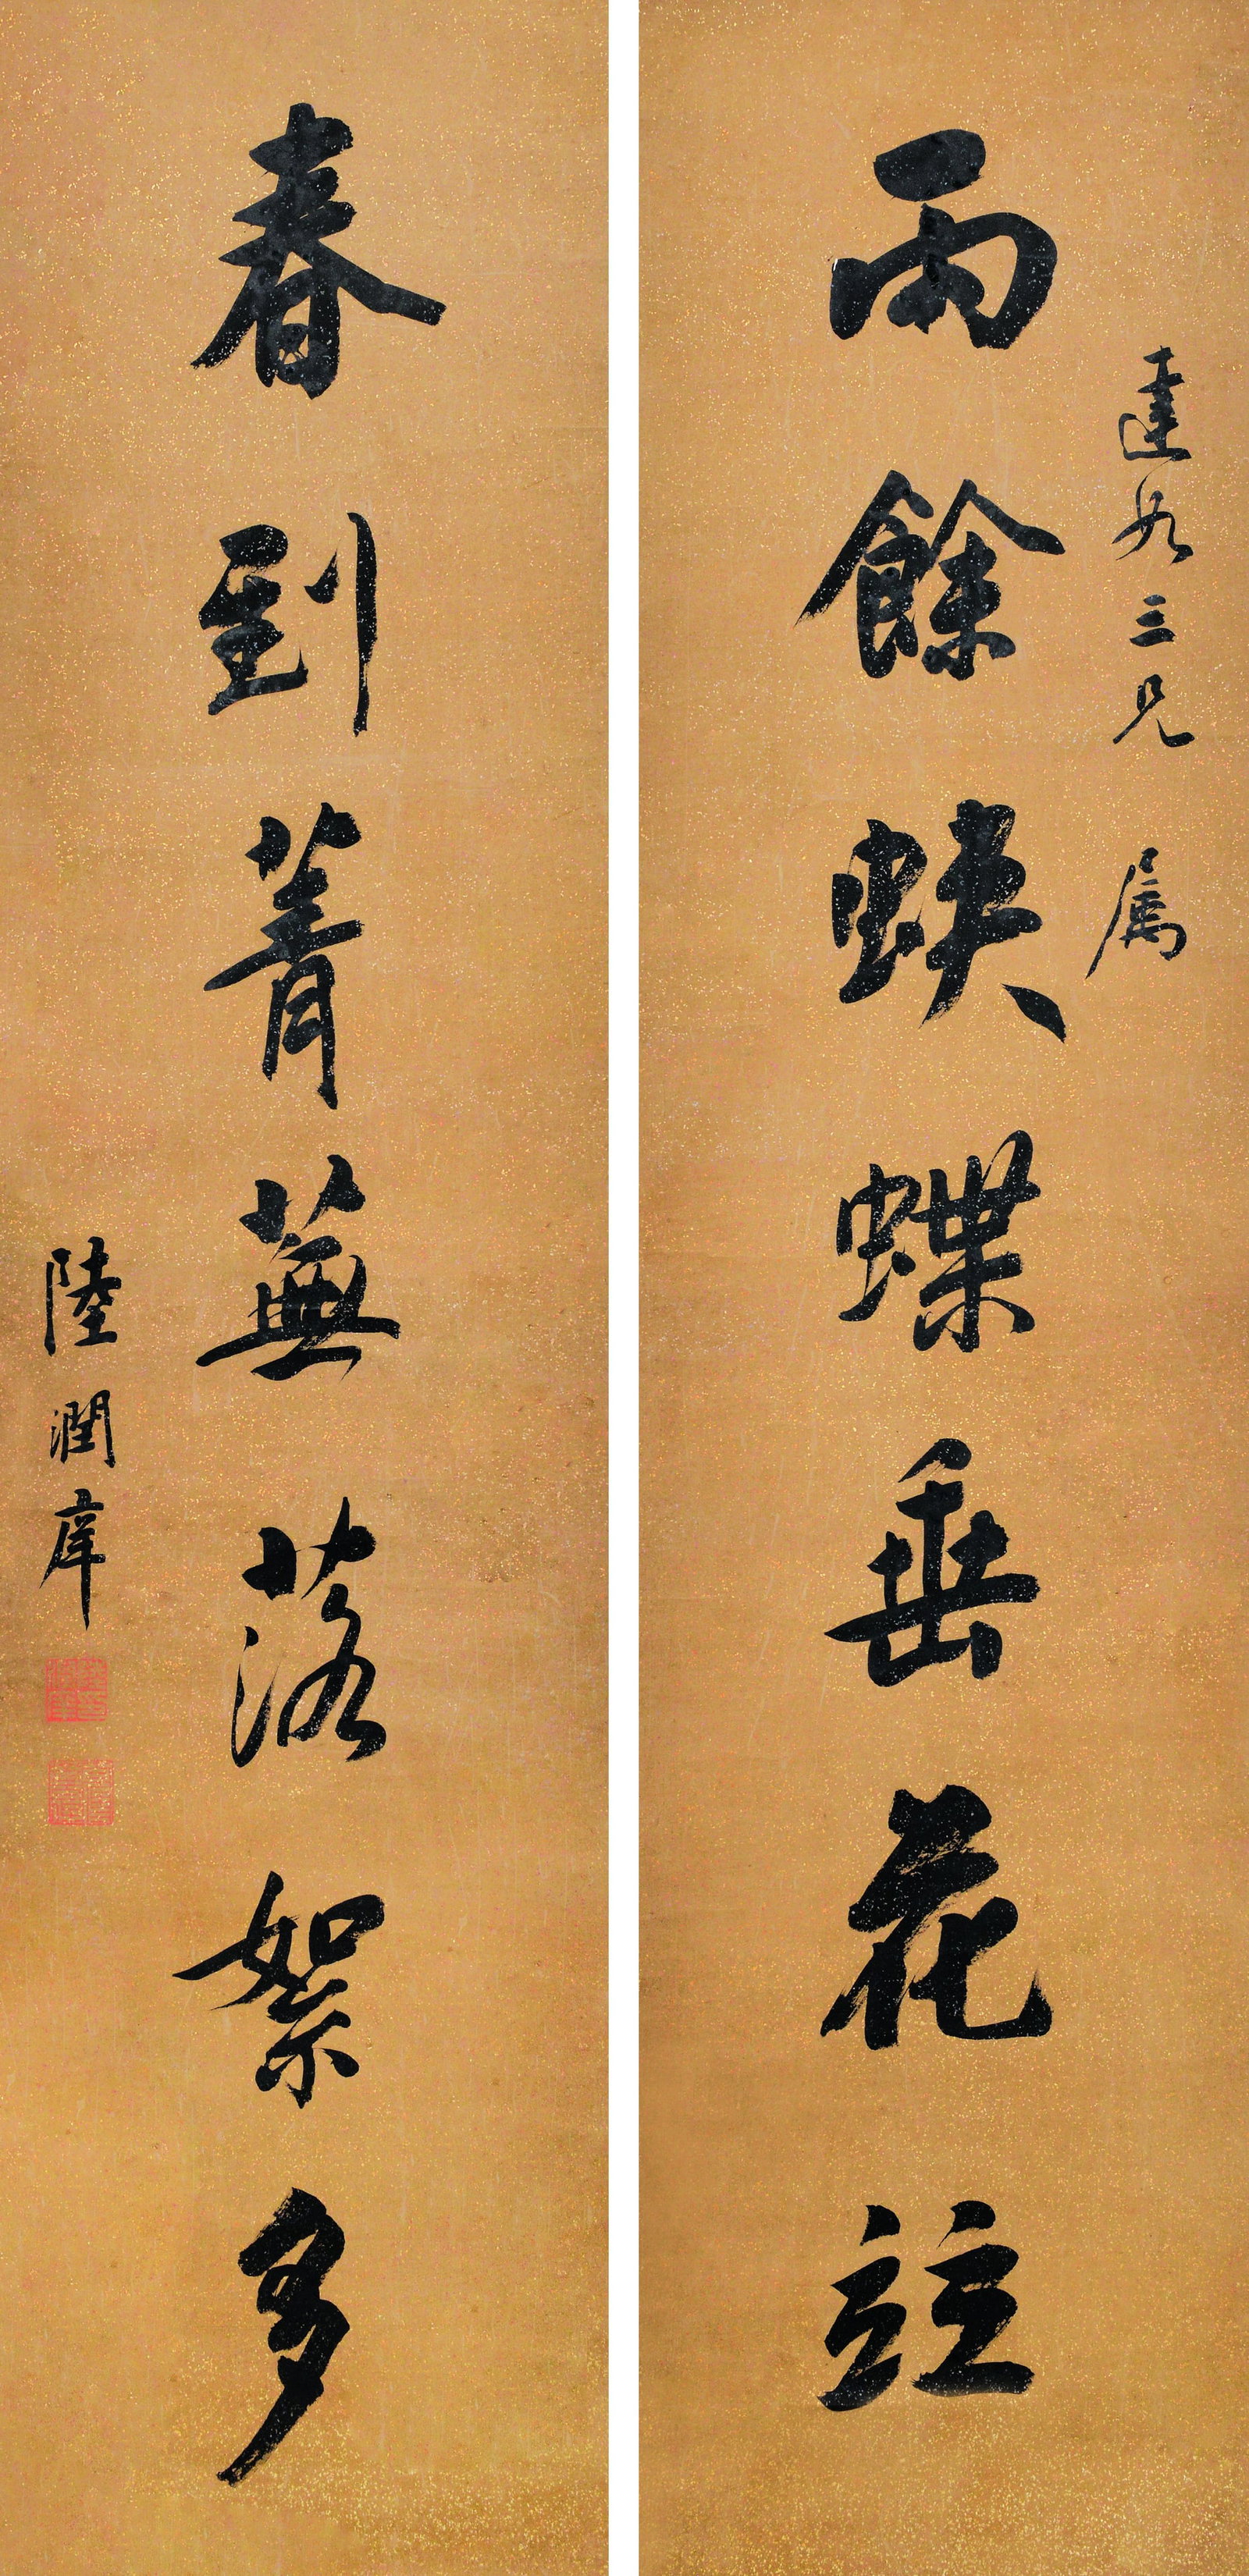 達三兄属
雨餘蛺蝶垂花竝
春到菁蕪落絮多
陸潤庠